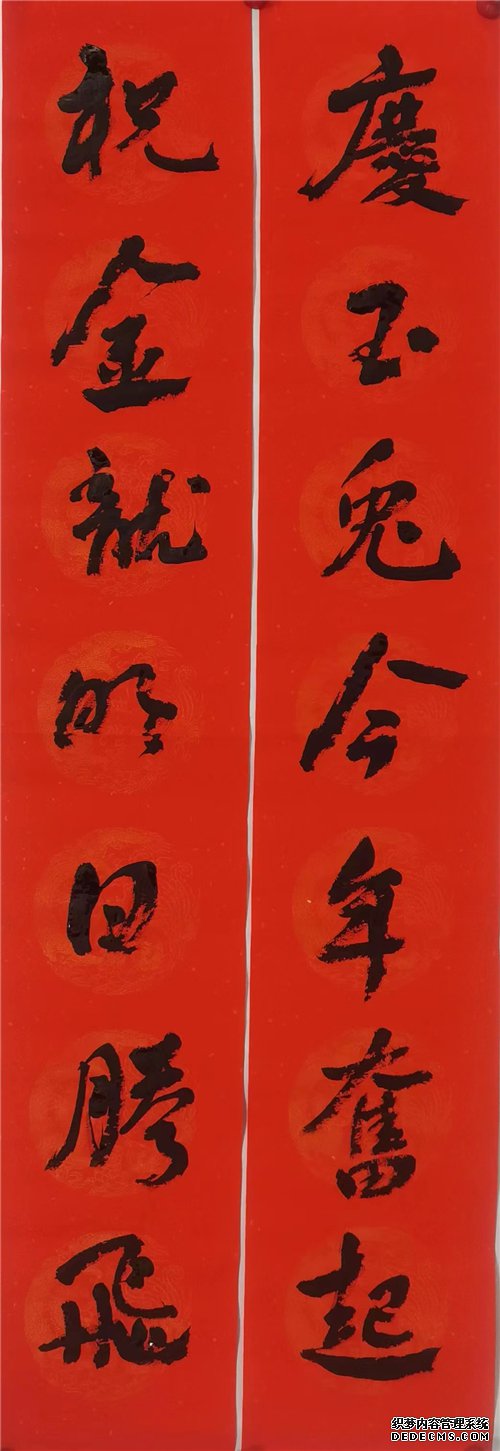 慶玉兔今年奮起
祝金龍明日騰飛
织梦内容管理系统
DEDECMS.COM